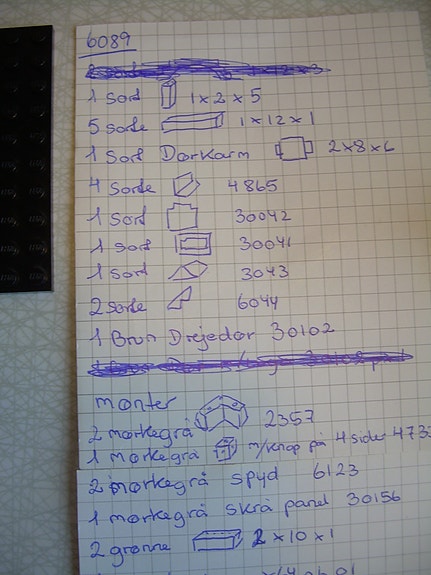 6089
1 Sort 1x2x5
5 sorte 1x12x1
1 Sort Dørkarm 2x8x6
4 Sorte 4865
1 Sort 30042
1 Sort 30041
1 Sort 3043
2 Sorte 6044
1 Brun Drejedør 30102
monter
2 mørkegrå 2357
1 mørkegrå m/knop på 4 sider 473
2 mørkegrå spyd 6123
1 mørkegrå skrå panel 30156
2 grønne 2x10x1